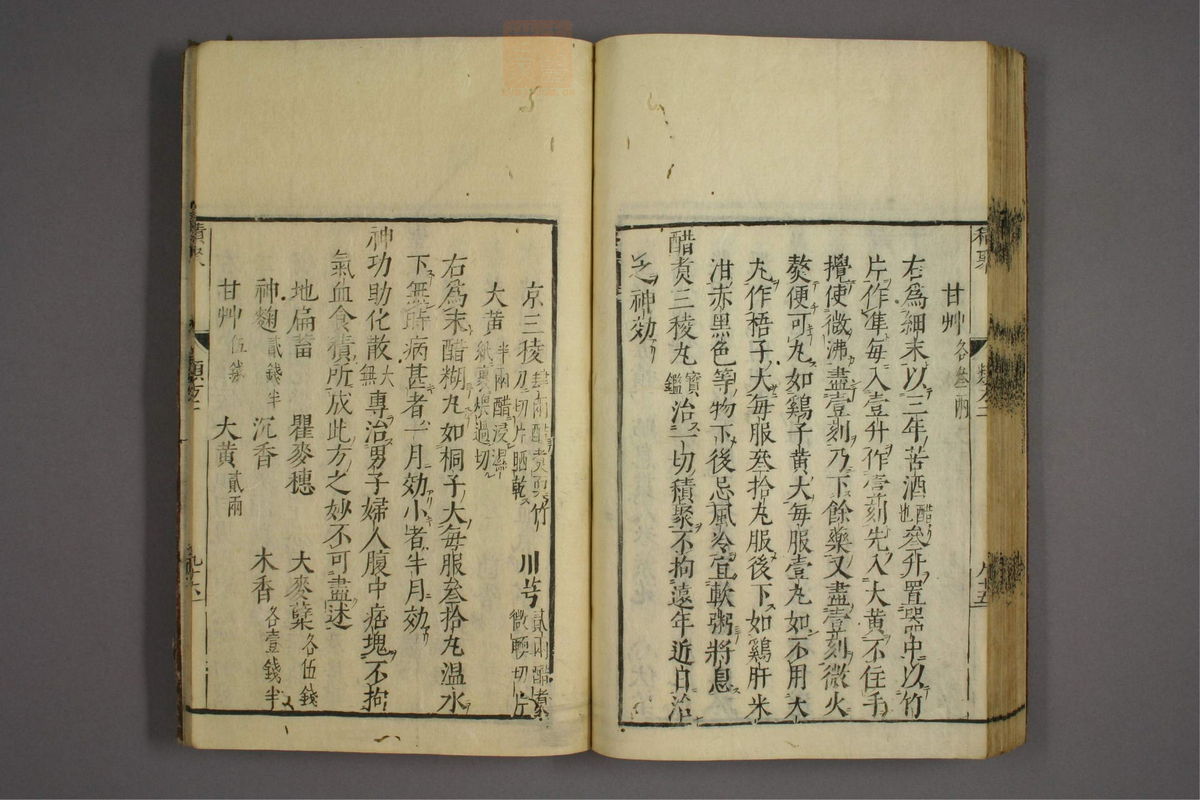 甘艸各叁兩
右爲細末以三年苦酒醋也叁升置器中以竹
片作準每入壹升作壹刻先入大黃不住手
攪使微沸盡壹刻乃下餘藥又盡壹刻微火
熬便可丸如鷄子黃大每服壹丸如不用大
丸作梧子大每服叁拾丸服後下如鷄肝米
泔赤黑色等物下後忌風冷宜軟粥將息
醋煑三稜丸寶鑑治一切積聚不拘遠年近日治
之神効
京三稜肆兩醋煑竹刀切片晒乾 川芎貳兩醋煑微軟切片
大黃半兩醋浸濕紙裏煨過切
右爲末醋糊丸如桐子大每服叁拾丸温水
下無時病甚者一月効小者半月効
神功助化散大無專治男子婦人腹中痞塊不拘
氣血食積所成此方之妙不可盡述
地扁畜 瞿麥穗 大麥蘖各伍錢
神麴貳錢半 沉香 木香各壹錢半
甘艸伍錢 大黃貳兩